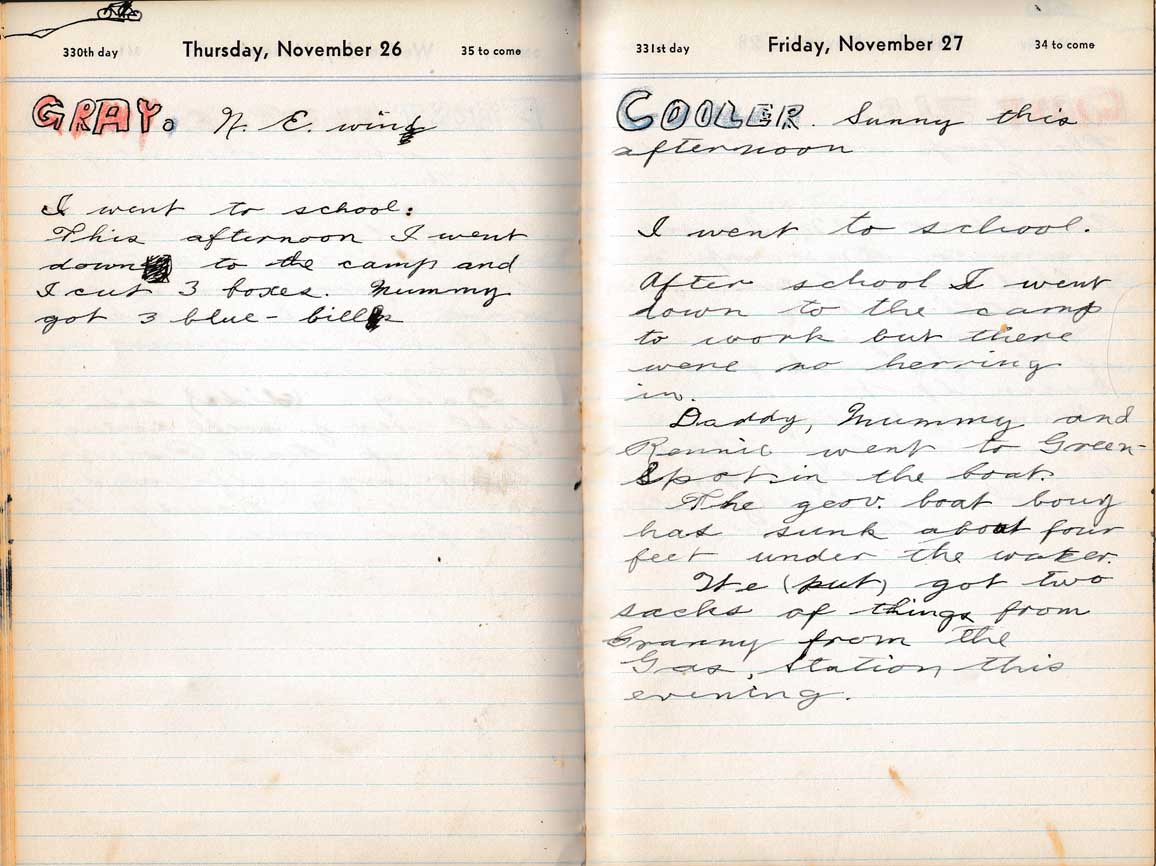 330th day Thursday, November 26 35 to come
GRAY. N. E. wind
I went to school.
This afternoon I went
down to the camp and
I cut 3 boxes. Mummy
got 3 blue-bills
331st day Friday, November 27 34 to come
COOLER. Sunny this
afternoon
I went to school.
After school I went
down to the camp
to work but there
were no herring
in.
Daddy, Mummy and
Rennie went to Green-
Spot in the boat.
The gov. boat
has sunk about four
feet under the water.
We (put) got two
sacks of things from
Granny from the
Gas Station this
evening.